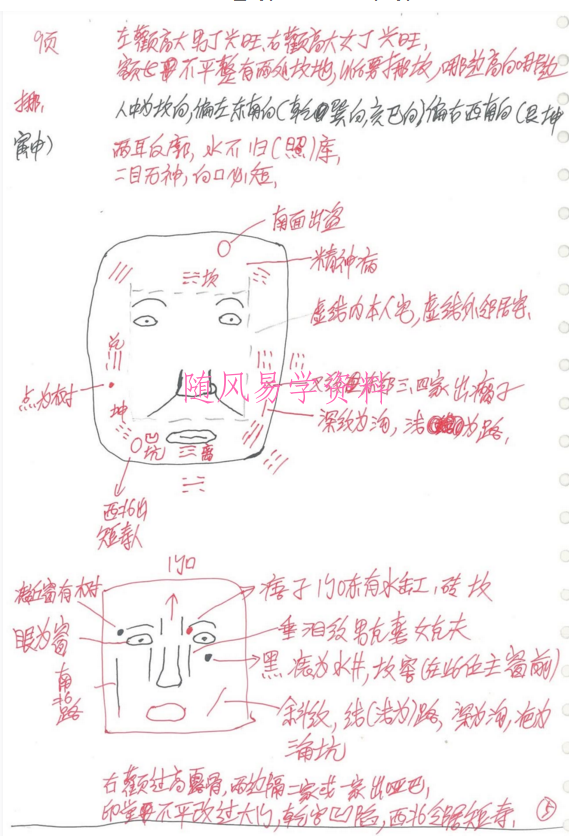 9页
左颧高大男丁兴旺,右颧高大女丁兴旺,
额七要不平整有两处坎地,必要挪坎,哪边高向哪边
挪,
人中为坎向,偏左东南向(乾巽向,亥巳向)偏右西南向(艮坤
寅申)
两耳反廓,水不归(照)库,
二目无神,向口必短,
南面出盗
精神病
坎
虚线内本人宅,虚线外邻居宅.
兑
随风易学资料
三、四家出瘸子
点为树
坤
深纹为沟,洁为路,
坑
离
西北出
短寿人
门口
附近窗有树
痣子门口东有水缸,砖坎
眼为窗
垂泪纹男克妻女克夫
黑痣为水井,坎窖(在此位主窗前)
南北路
斜纹,结(洁为)路,深为沟,疤为
海坑
右颧过高露骨,两边隔二家或一家出哑巴,
印堂不平改过大门,乾宫凹陷,西北邻短寿.
5